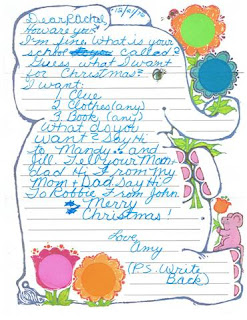 12/2/76
Dear Rachel,
How are you?
I'm fine. What is your
school called?
Guess what I want
for Christmas?
I want:
1 Clue
2 Clothes (any)
3 Book (any)
What do you
want? Say Hi
to Mandy and
Jill. Tell your Mom,
dad Hi From my
Mom + Dad. Say Hi
To Robbie From John.
Merry
Christmas!
Love,
Amy
(P.S. Write
Back)